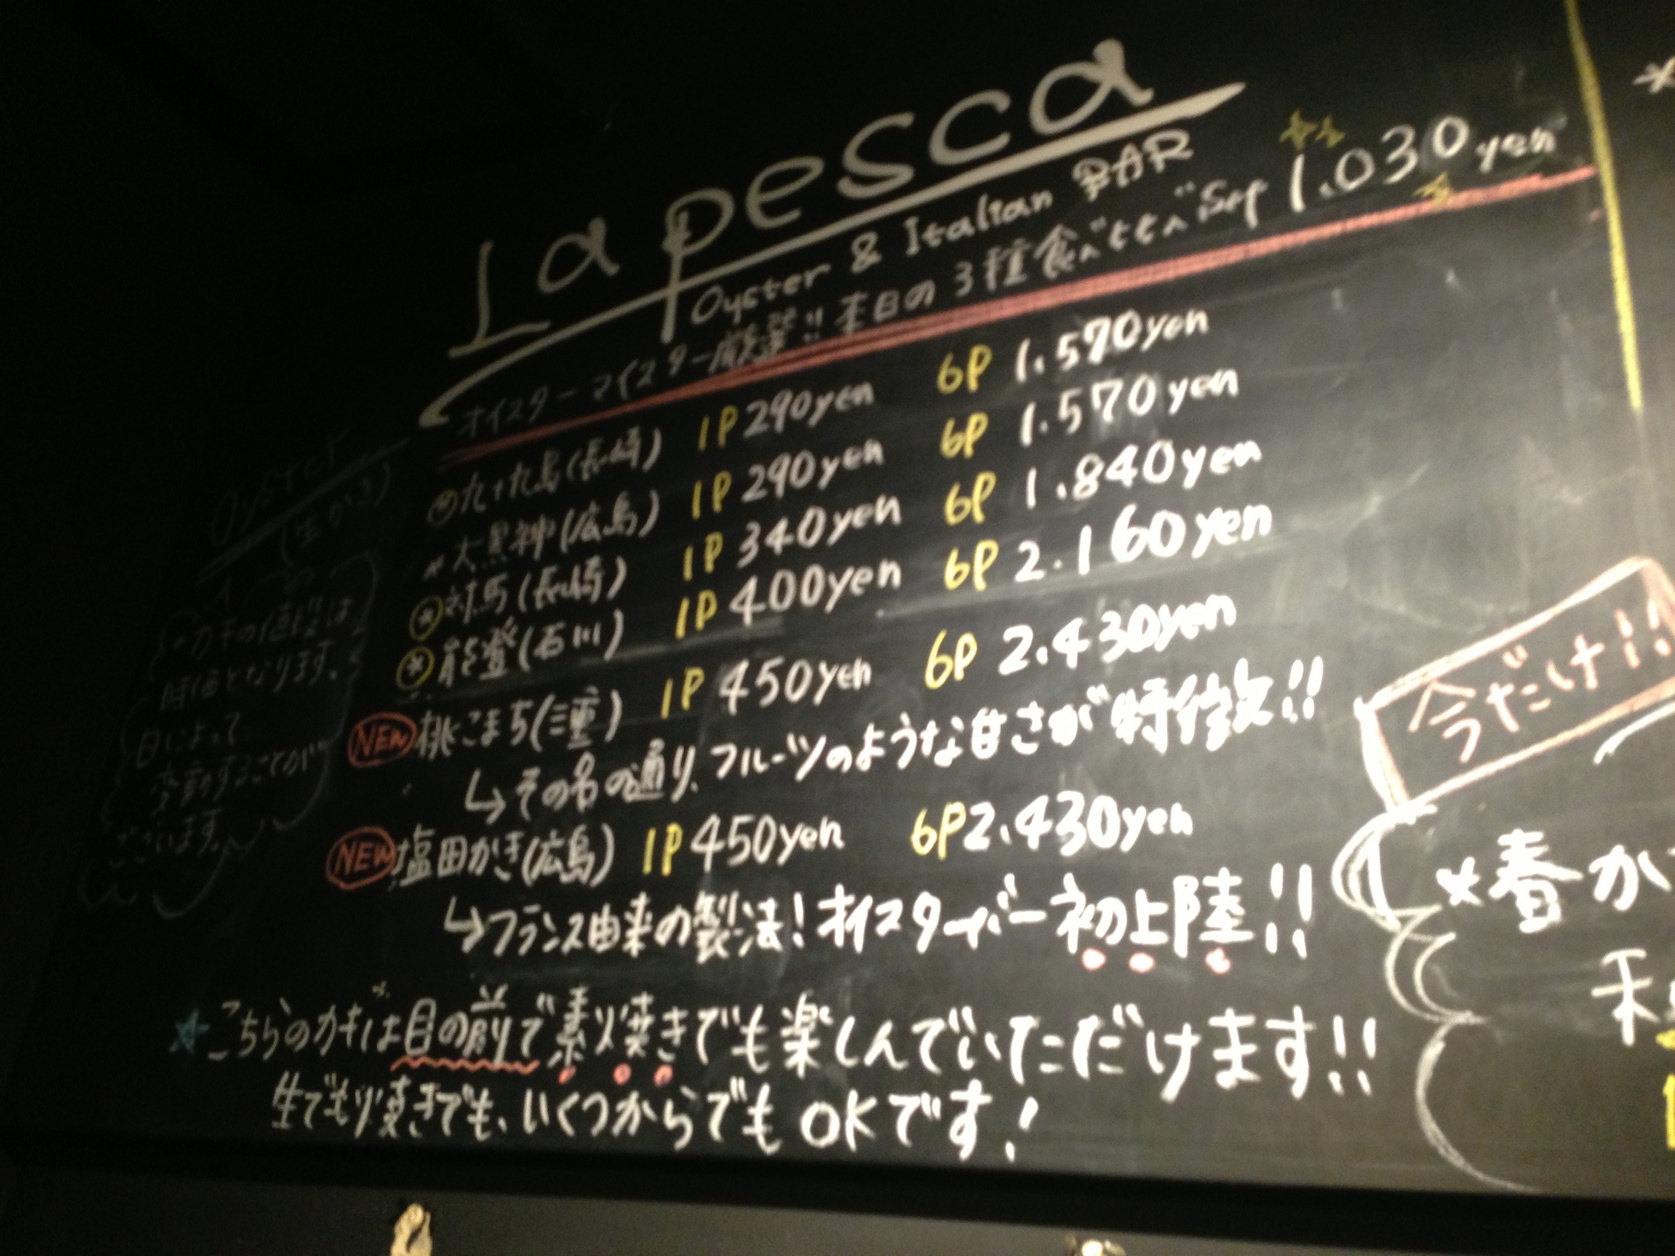 La pesca
Oyster & Italian BAR
オイスターマイスター厳選!!本日の3種食べ比べSet 1.030yen
九十九島(長崎) 1P 290yen 6P 1.570yen
*大黒神(広島) 1P 290yen 6P 1.570yen
*対馬(長崎) 1P 340yen 6P 1.840yen
*能登(石川) 1P 400yen 6P 2.160yen
NEW 桃こまち(三重) 1P 450yen 6P 2.430yen
↳その名の通り、フルーツのような甘さが特徴!!
NEW 塩田かき(広島) 1P 450yen 6P 2.430yen
↳フランス由来の製法!オイスターバー初上陸!!
★こちらのカキは目の前で素焼きでも楽しんでいただけます!!
生でも焼きでも、いくつからでもOKです!
Oyster
(生がき)
・カキの値段は
時価となります。
日によって
変動することが
ございます。
今だけ!!
*春か